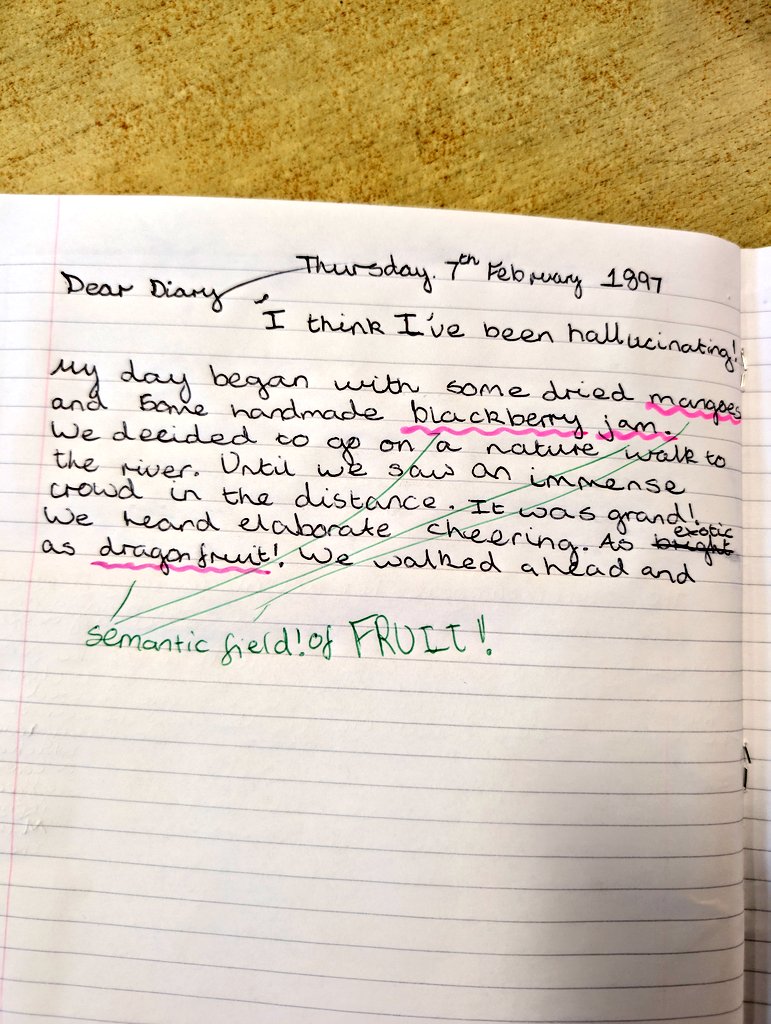 Thursday. 7th February 1897
Dear Diary
'I think I've been hallucinating!
My day began with some dried mangoes
and some handmade blackberry jam.
We decided to go on a nature walk to
the river. Until we saw an immense
crowd in the distance. It was grand!
We heard elaborate cheering. As bright exotic
as dragonfruit! We walked ahead and
semantic field! of FRUIT!